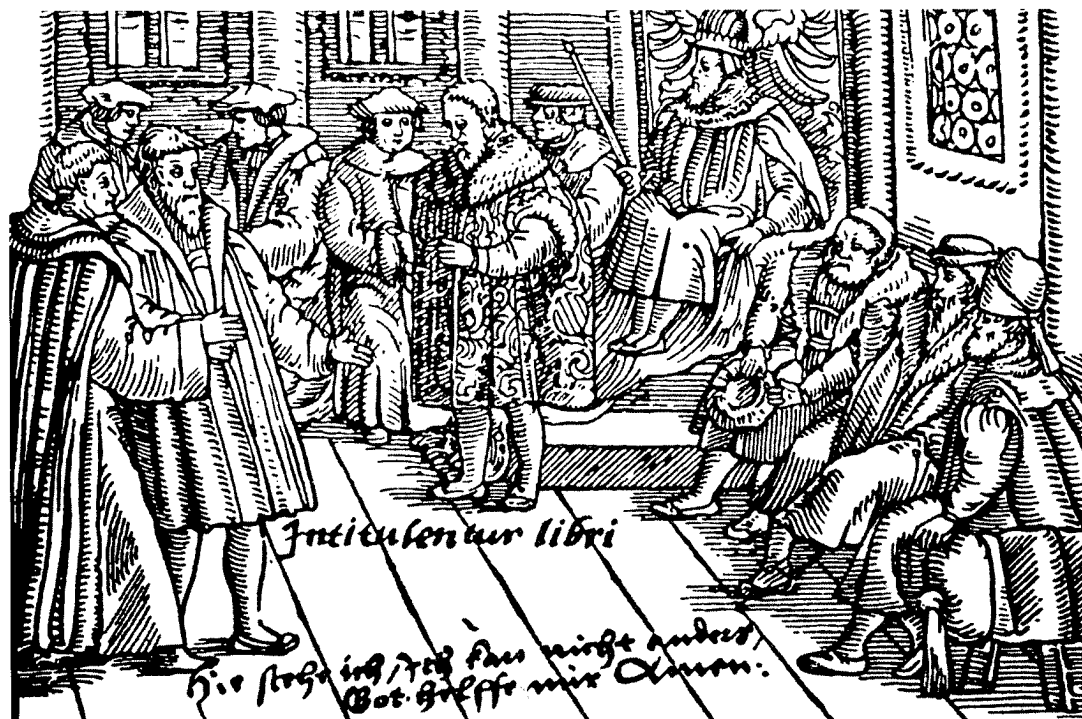 Intitulentur libri
Hie stehe ich / ich kan nicht anders /
Got helffe mir Amen: